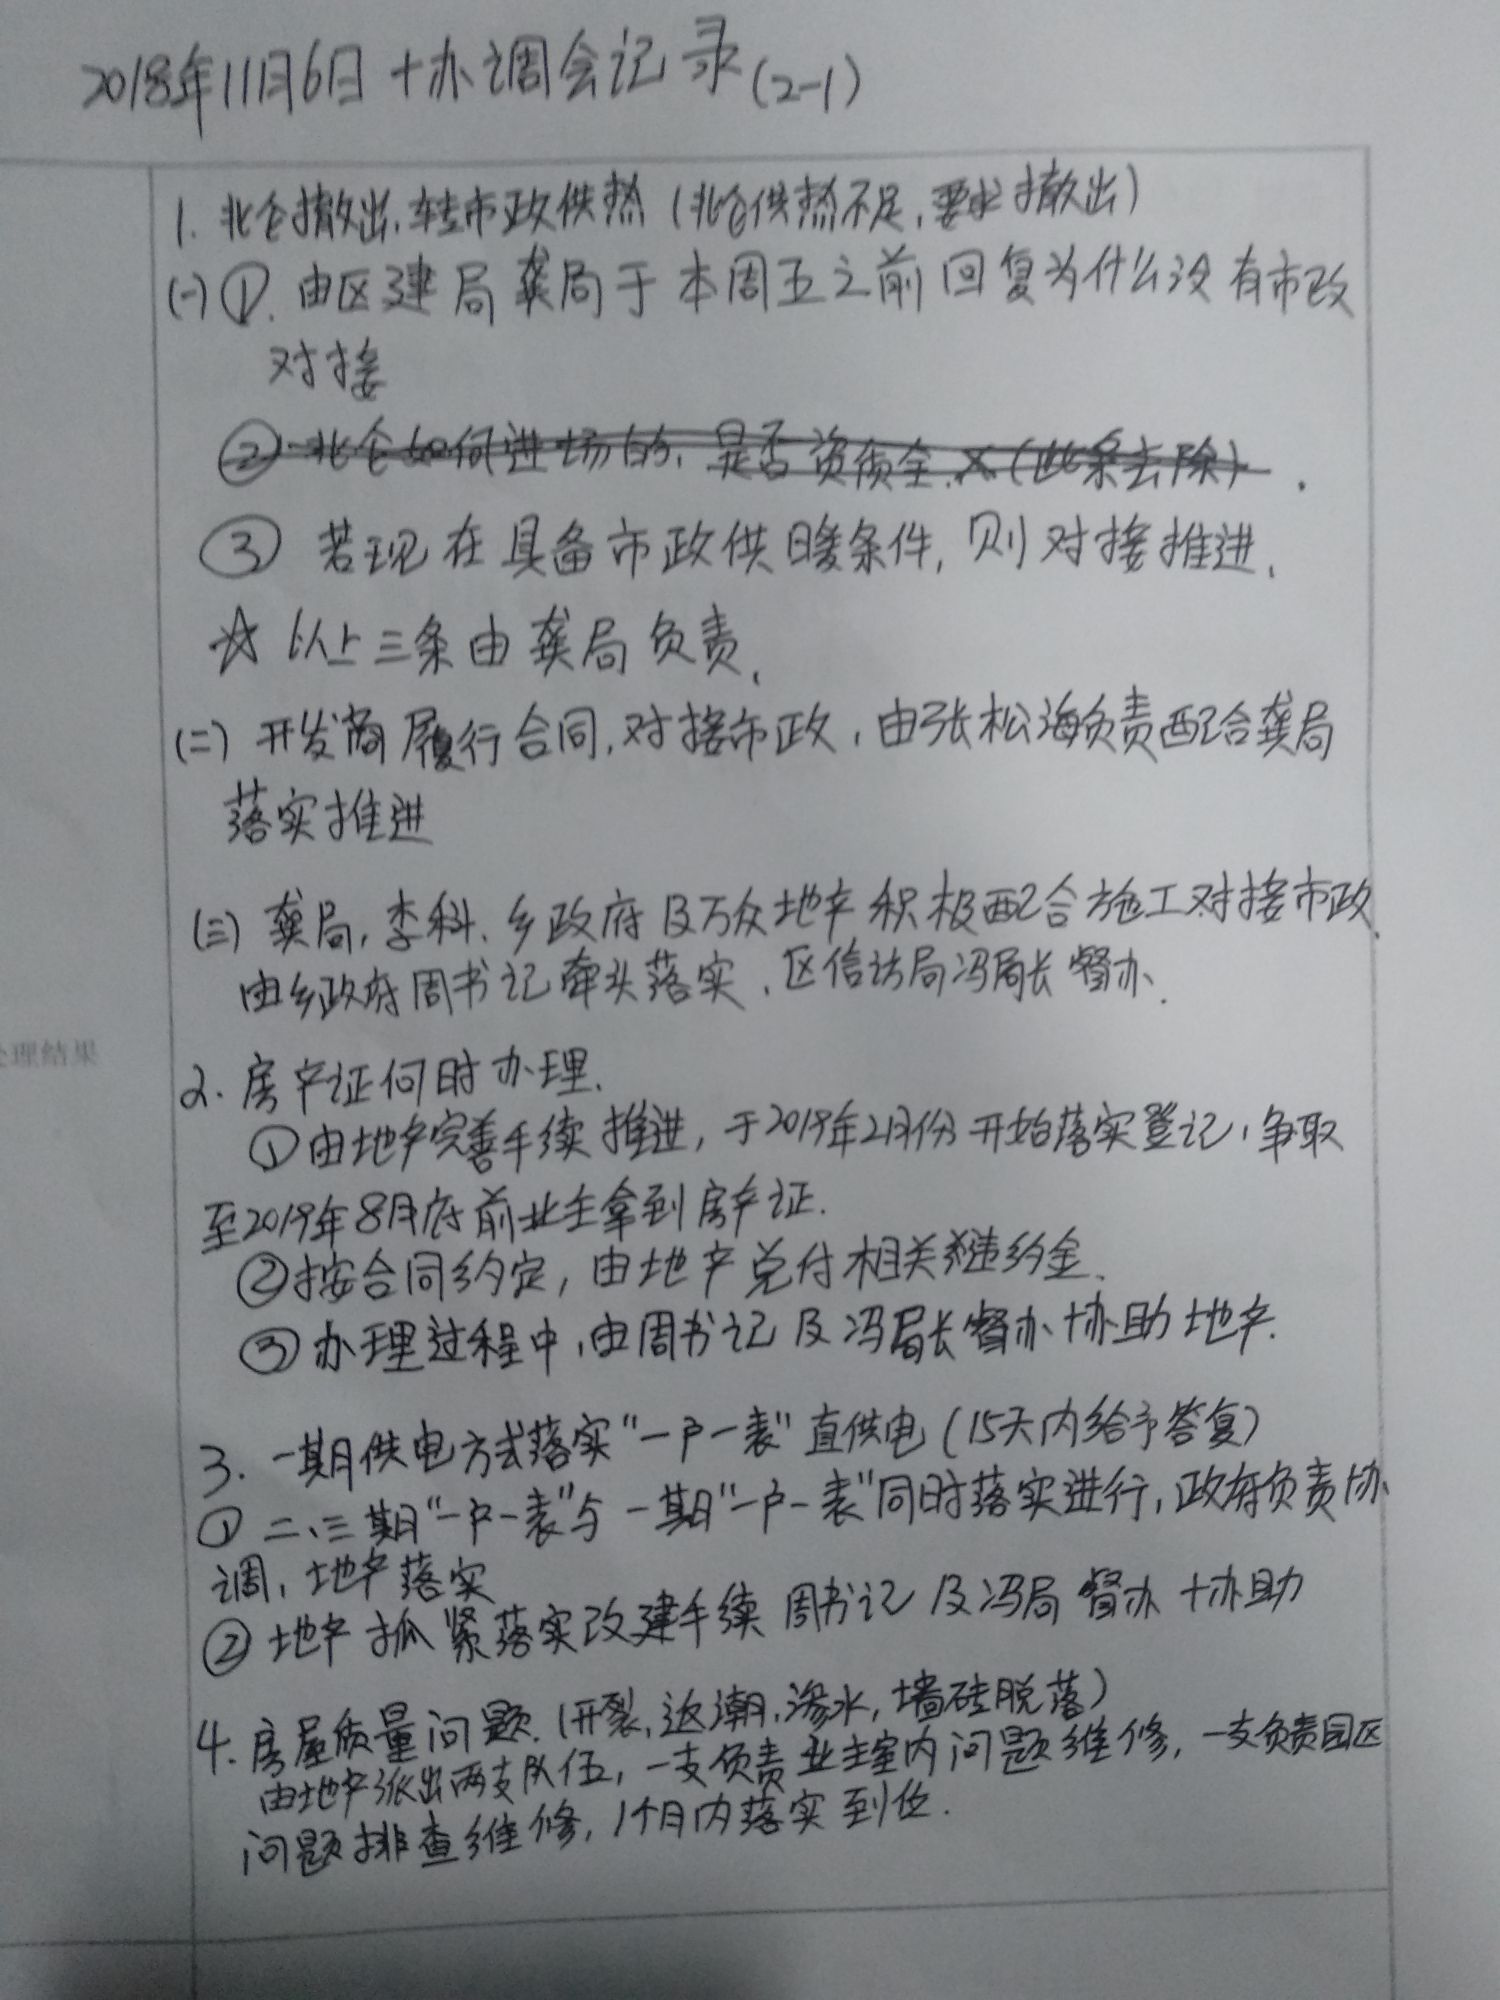 2018年11月6日协调会记录(2-1)
1. 北仑撤出,转市政供热(北仑供热不足,要求撤出)
(一)①.由区建局龚局于本周五之前回复为什么没有市政
对接
②北仑如何进场的,是否资质全.×(此条去除).
③若现在具备市政供暖条件,则对接推进.
☆以上三条由龚局负责.
(二)开发商履行合同,对接市政,由张松海负责配合龚局
落实推进
(三)龚局,李科.乡政府及万众地产积极配合施工对接市政.
由乡政府周书记牵头落实.区信访局冯局长督办.
处理结果
2.房产证何时办理.
①由地产完善手续推进,于2019年2月份开始落实登记,争取
至2019年8月底前业主拿到房产证.
②按合同约定,由地产兑付相关违约金.
③办理过程中,由周书记及冯局长督办协助地产.
3.一期供电方式落实"一户一表"直供电(15天内给予答复)
①二、三期"一户一表"与一期"一户一表"同时落实进行,政府负责协
调,地产落实
②地产抓紧落实改建手续 周书记及冯局督办协助
4.房屋质量问题.(开裂,返潮,渗水,墙砖脱落)
由地产派出两支队伍,一支负责业主室内问题维修,一支负责园区
问题排查维修,1个月内落实到位.